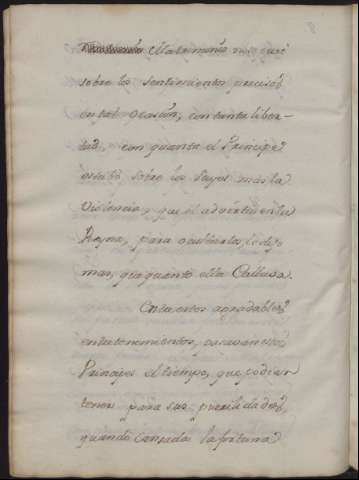 ella termino mejor
sobre los sentimientos precisos
en tal ocasion, con tanta liber-
tad, con quanta el Principe
sobre los suyos mas la
violencia, que el advertio en la
Reyna, para ocultarlos, le dijo
mas, que quanto ella Callava.
En estos agradables
entretenimientos, pasavan estos
Principes el tiempo, que podian
tener para sus puerilidades,
quando cansada la fortuna